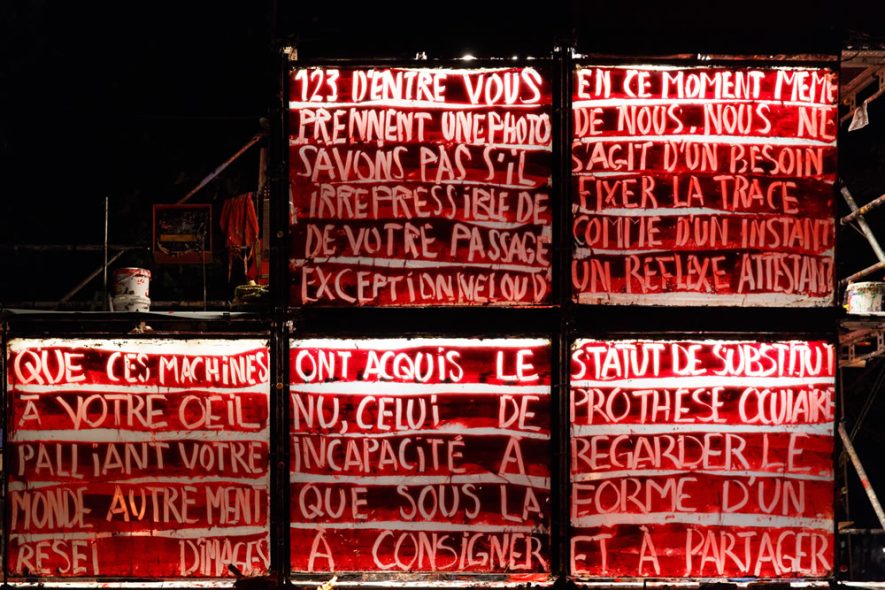 123 D'ENTRE VOUS EN CE MOMENT MÊME
PRENNENT UNE PHOTO DE NOUS. NOUS NE
SAVONS PAS S'IL S'AGIT D'UN BESOIN
IRREPRESSIBLE DE FIXER LA TRACE
DE VOTRE PASSAGE COMME D'UN INSTANT
EXCEPTIONNEL OU D' UN REFLEXE ATTESTANT
QUE CES MACHINES ONT ACQUIS LE STATUT DE SUBSTITUT
À VOTRE OEIL NU, CELUI DE PROTHÈSE OCULAIRE
PALLIANT VOTRE INCAPACITÉ A REGARDER LE
MONDE AUTREMENT QUE SOUS LA FORME D'UN
D'IMAGES À CONSIGNER ET À PARTAGER